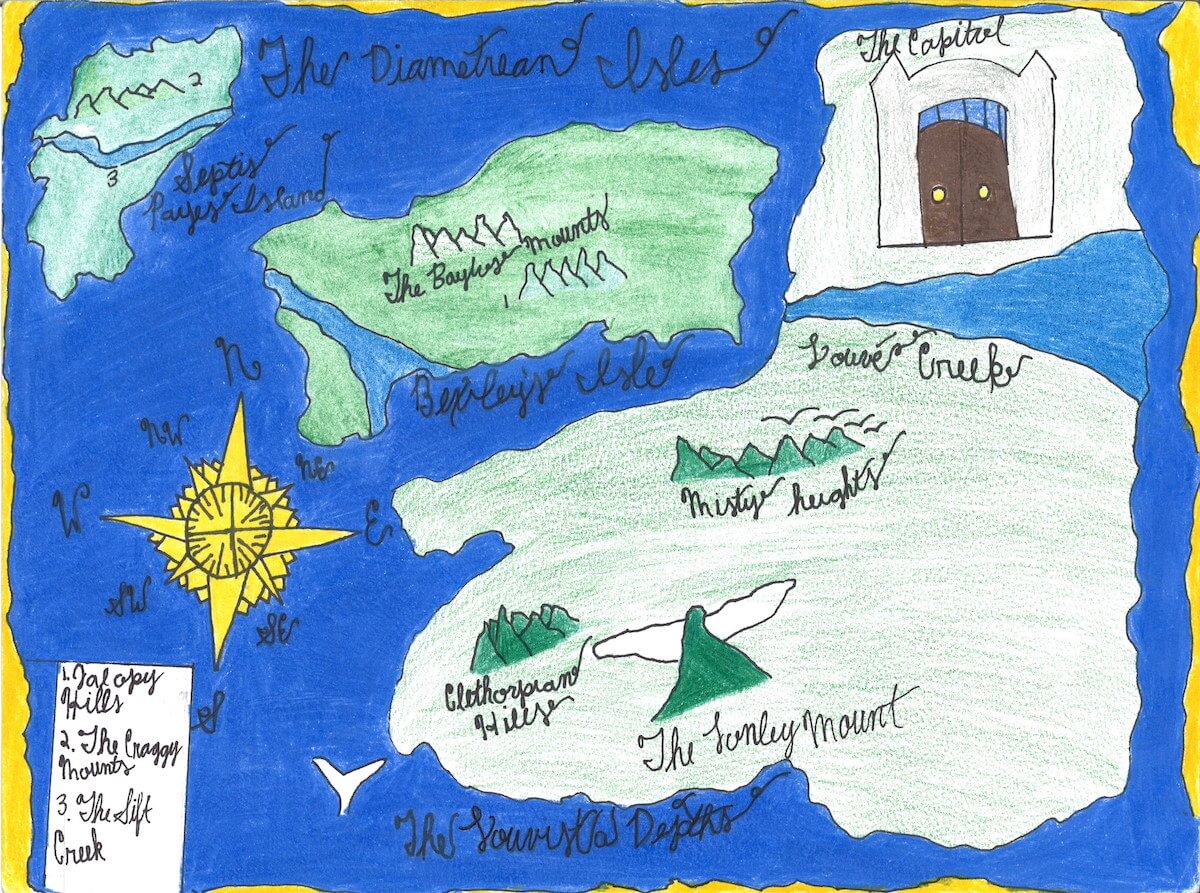 The Diametrean Isles
The Capitol
2
3
Septis
Payes Island
The Mounts
1
Bexley's Isle
Creek
Misty heights
Clethorpian
Hills
The Lonley Mount
The Depths
N
NW
NE
W
E
SW
SE
S
1. Jalopy
Hills
2. The Craggy
Mounts
3. The Sift
Creek